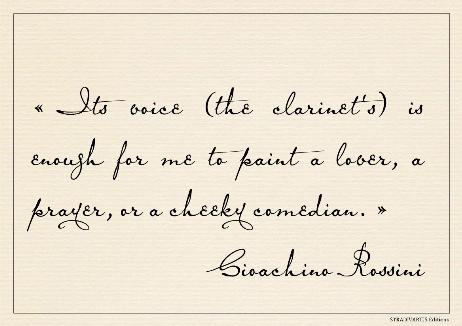 « Its voice (the clarinet's) is
enough for me to paint a lover, a
prayer, or a cheeky comedian. »
Gioachino Rossini
STRADIVARIUS Editions